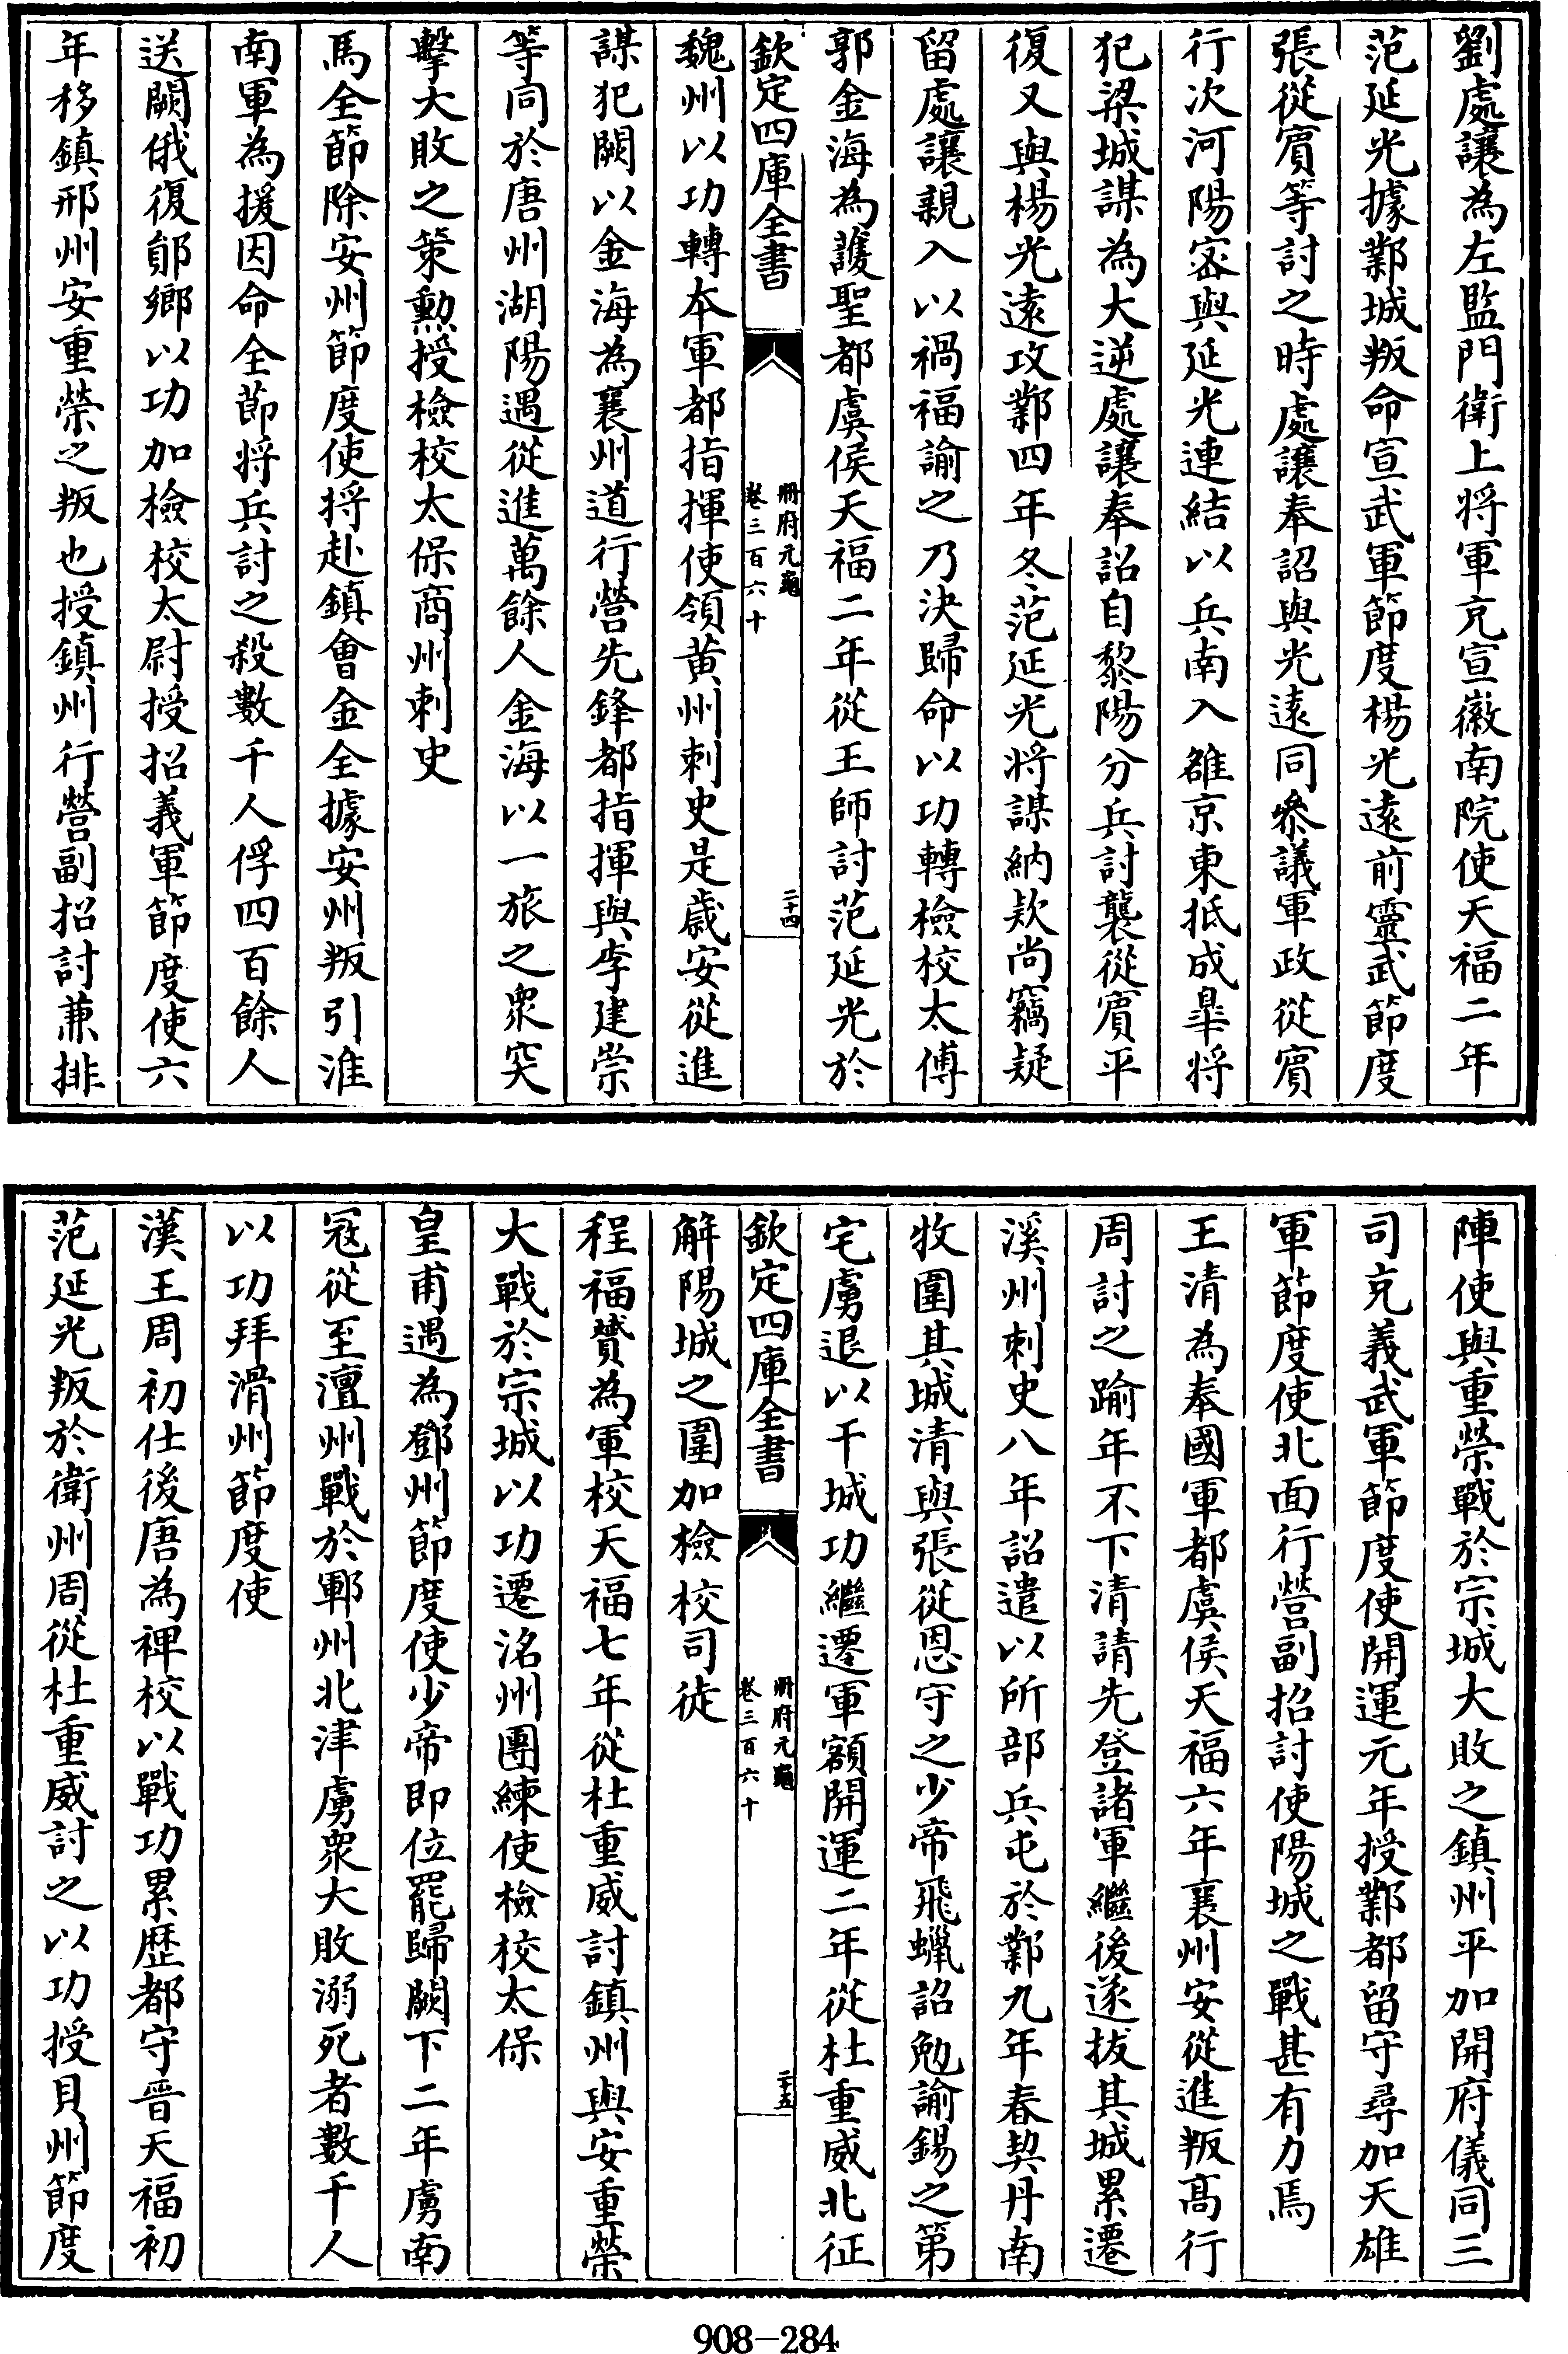 劉處讓為左監門衛上將軍充宣徽南院使天福二年
范延光據鄴城叛命宣武軍節度楊光遠前靈武節度
張從賔等討之時處讓奉詔與光遠同參議軍政從賔
行次河陽密與延光連結以兵南入雒京東抵成臯將
犯梁城謀為大逆處讓奉詔自黎陽分兵討襲從賔平
復又與楊光遠攻鄴四年冬范延光將謀納款尚竊疑
留處讓親入以禍福諭之乃決歸命以功轉檢校太傅
郭金海為護聖都虞侯天福二年從王師討范延光於
欽定四庫全書
冊府元龜
卷三百六十
二十四
魏州以功轉本軍都指揮使領黄州刺史是歲安從進
謀犯闕以金海為襄州道行營先鋒都指揮與李建崇
等同於唐州湖陽遇從進萬餘人金海以一旅之衆突
擊大敗之策勲授檢校太保商州刺史
馬全節除安州節度使將赴鎮會金全據安州叛引淮
南軍為援因命全節將兵討之殺數千人俘四百餘人
送闕俄復郧鄉以功加檢校太尉授招義軍節度使六
年移鎮邢州安重榮之叛也授鎮州行營副招討兼排
陣使與重榮戰於宗城大敗之鎮州平加開府儀同三
司充義武軍節度使開運元年授鄴都留守尋加天雄
軍節度使北面行營副招討使陽城之戰甚有力焉
王清為奉國軍都虞侯天福六年襄州安從進叛髙行
周討之踰年不下清請先登諸軍繼後遂拔其城累遷
溪州刺史八年詔遣以所部兵屯於鄴九年春契丹南
牧圍其城清與張從恩守之少帝飛蠟詔勉諭錫之第
宅虜退以干城功繼遷軍額開運二年從杜重威北征
欽定四庫全書
冊府元龜
卷三百六十
二十五
解陽城之圍加檢校司徒
程福贇為軍校天福七年從杜重威討鎮州與安重榮
大戰於宗城以功遷洺州團練使檢校太保
皇甫遇為鄧州節度使少帝即位罷歸闕下二年虜南
冦從至澶州戰於鄆州北津虜衆大敗溺死者數千人
以功拜滑州節度使
漢王周初仕後唐為裨校以戰功累歴都守晋天福初
范延光叛於衛州周從杜重威討之以功授貝州節度
908-284